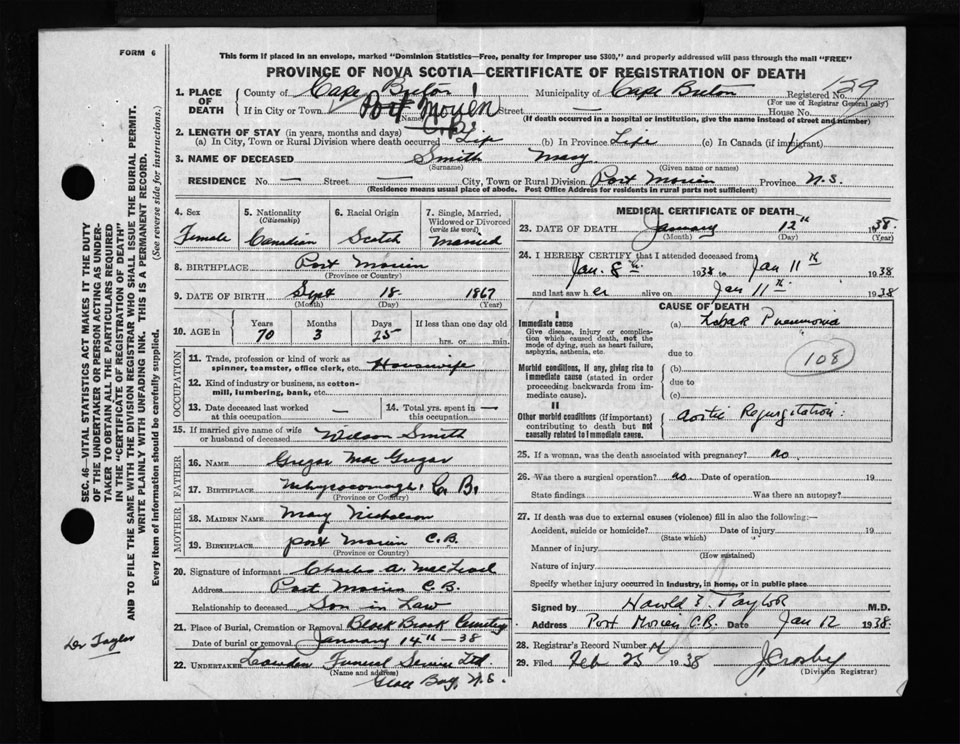 FORM 6
This form if placed in an envelope, marked "Dominion Statistics—Free, penalty for improper use $300," and properly addressed will pass through the mail "FREE"
PROVINCE OF NOVA SCOTIA—CERTIFICATE OF REGISTRATION OF DEATH
1. PLACE OF DEATH County of Cape Breton Municipality of Cape Breton Registered No. 129
(For use of Registrar General only)
If in City or Town Port Morien C.B. Street — House No.
(Name)
(If death occurred in a hospital or institution, give the name instead of street and number)
2. LENGTH OF STAY (in years, months and days)
(a) In City, Town or Rural Division where death occurred Life (b) In Province Life (c) In Canada (if immigrant)
3. NAME OF DECEASED Smith Mary
(Surname) (Given name or names)
RESIDENCE No. — Street — City, Town or Rural Division Port Morien Province N.S.
(Residence means usual place of abode. Post Office Address for residents in rural parts not sufficient)
4. Sex Female
5. Nationality (Citizenship) Canadian
6. Racial Origin Scotch
7. Single, Married, Widowed or Divorced (write the word) Married
8. BIRTHPLACE Port Morien
(Province or Country)
9. DATE OF BIRTH Sept 18 1867
(Month) (Day) (Year)
10. AGE in Years 70 Months 3 Days 25 If less than one day old hrs. or min.
OCCUPATION
11. Trade, profession or kind of work as spinner, teamster, office clerk, etc. Housewife
12. Kind of industry or business, as cotton-mill, lumbering, bank, etc.
13. Date deceased last worked at this occupation —
14. Total yrs. spent in this occupation —
15. If married give name of wife or husband of deceased Wilson Smith
FATHER
16. NAME Gregor MacGregor
17. BIRTHPLACE Whycocomagh C.B.
(Province or Country)
MOTHER
18. MAIDEN NAME Mary Nicholson
19. BIRTHPLACE Port Morien C.B.
(Province or Country)
20. Signature of informant Charles A. MacLeod
Address Port Morien C.B.
Relationship to deceased Son in Law
21. Place of Burial, Cremation or Removal Black Brook Cemetery
Date of burial or removal January 14th - 38
22. UNDERTAKER Funeral Service Ltd.
(Name and address)
Glace Bay, N.S.
MEDICAL CERTIFICATE OF DEATH
23. DATE OF DEATH January 12th 1938
(Month) (Day) (Year)
24. I HEREBY CERTIFY that I attended deceased from
Jan. 8th 1938 to Jan 11th 1938
and last saw her alive on Jan 11th 1938
CAUSE OF DEATH
I
Immediate cause (a) Lobar Pneumonia
Give disease, injury or complication which caused death, not the mode of dying, such as heart failure, asphyxia, asthenia, etc.
due to
108
Morbid conditions, if any, giving rise to immediate cause (stated in order proceeding backwards from immediate cause).
(b)
due to
(c)
II
Other morbid conditions (if important) contributing to death but not causally related to immediate cause.
Aortic Regurgitation
25. If a woman, was the death associated with pregnancy? no.
26. Was there a surgical operation? no. Date of operation 19
State findings Was there an autopsy?
27. If death was due to external causes (violence) fill in also the following:—
Accident, suicide or homicide? Date of injury 19
(State which)
Manner of injury
(How sustained)
Nature of injury
Specify whether injury occurred in industry, in home, or in public place
Signed by Harold E. Taylor M.D.
Address Port Morien C.B. Date Jan 12 1938
28. Registrar's Record Number
29. Filed Feb 25 1938 J Crosby
(Division Registrar)
SEC. 46—VITAL STATISTICS ACT MAKES IT THE DUTY
OF THE UNDERTAKER OR PERSON ACTING AS UNDER-
TAKER TO OBTAIN ALL THE PARTICULARS REQUIRED
IN THE "CERTIFICATE OF REGISTRATION OF DEATH"
AND TO FILE THE SAME WITH THE DIVISION REGISTRAR WHO SHALL ISSUE THE BURIAL PERMIT.
WRITE PLAINLY WITH UNFADING INK. THIS IS A PERMANENT RECORD.
Every item of information should be carefully supplied. (See reverse side for instructions.)
Dr Taylor